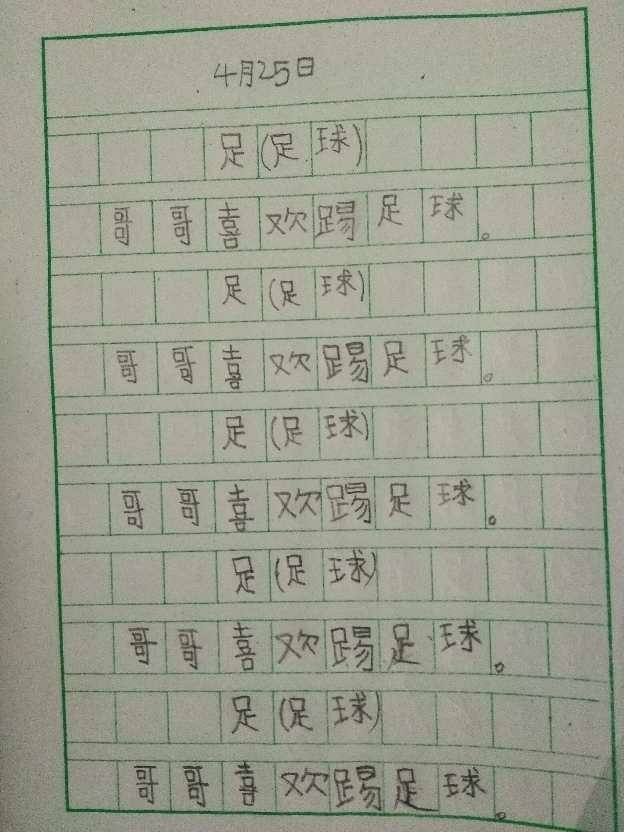 4月25日
足(足球)
哥哥喜欢踢足球。
足(足球)
哥哥喜欢踢足球。
足(足球)
哥哥喜欢踢足球。
足(足球)
哥哥喜欢踢足球。
足(足球)
哥哥喜欢踢足球。